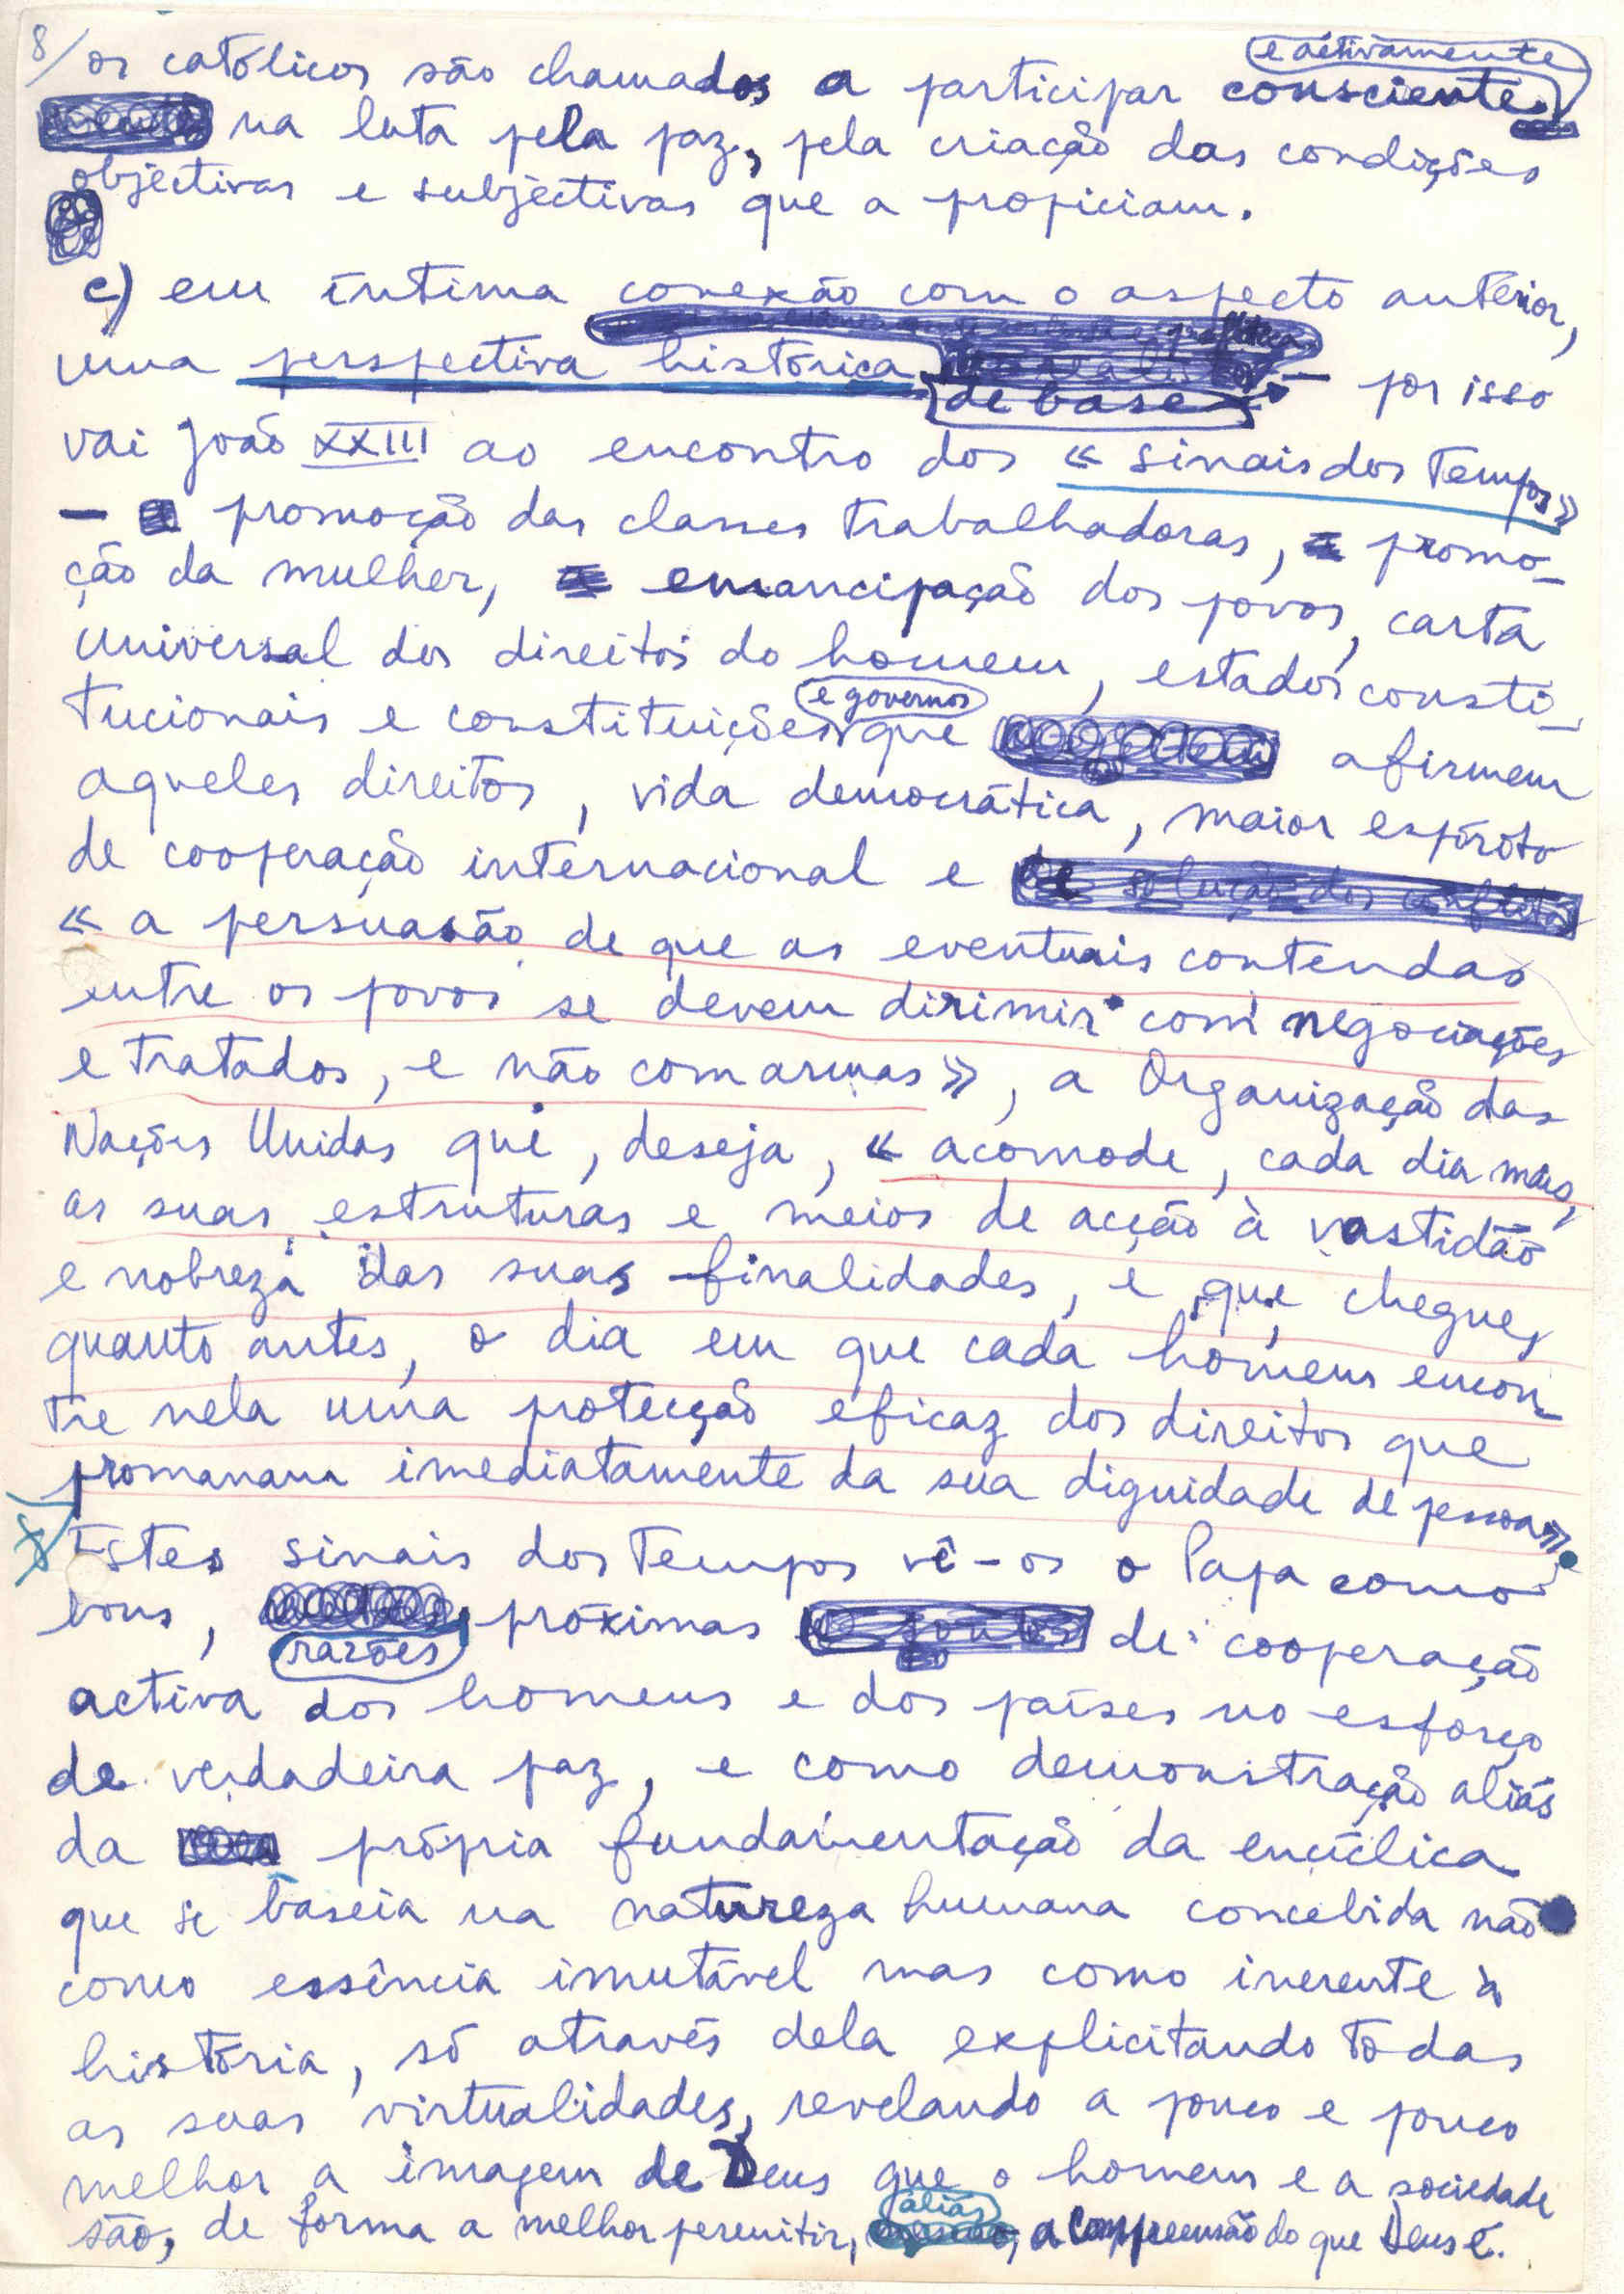 8/ os católicos são chamados a participar consciente e activamente
na luta pela paz, pela criação das condições
objectivas e subjectivas que a propiciam.
c) em íntima conexão com o aspecto anterior,
uma perspectiva histórica de base – por isso
vai João XXIII ao encontro dos « sinais dos tempos»
– promoção das classes trabalhadoras, promo-
ção da mulher, emancipação dos povos, carta
universal dos direitos do homem, estados consti-
tucionais e constituições e governos que afirmem
aqueles direitos, vida democrática, maior espírito
de cooperação internacional e
« a persuasão de que as eventuais contendas
entre os povos se devem dirimir com negociações
e tratados, e não com armas», a Organização das
Nações Unidas que, deseja, « acomode, cada dia mais,
as suas estruturas e meios de acção à vastidão
e nobreza das suas finalidades, e que chegue,
quanto antes, o dia em que cada homem encon-
tre nela uma protecção eficaz dos direitos que
promanam imediatamente da sua dignidade de pessoa».
Estes sinais dos tempos vê-os o Papa como
bons, razões próximas de cooperação
activa dos homens e dos países no esforço
de verdadeira paz, e como demonstração aliás
da própria fundamentação da encíclica
que se baseia na natureza humana concebida não
como essência imutável mas como inerente à
história, só através dela explicitando todas
as suas virtualidades, revelando a pouco e pouco
melhor a imagem de Deus que o homem e a sociedade
são, de forma a melhor permitir, aliás, a compreensão do que Deus é.